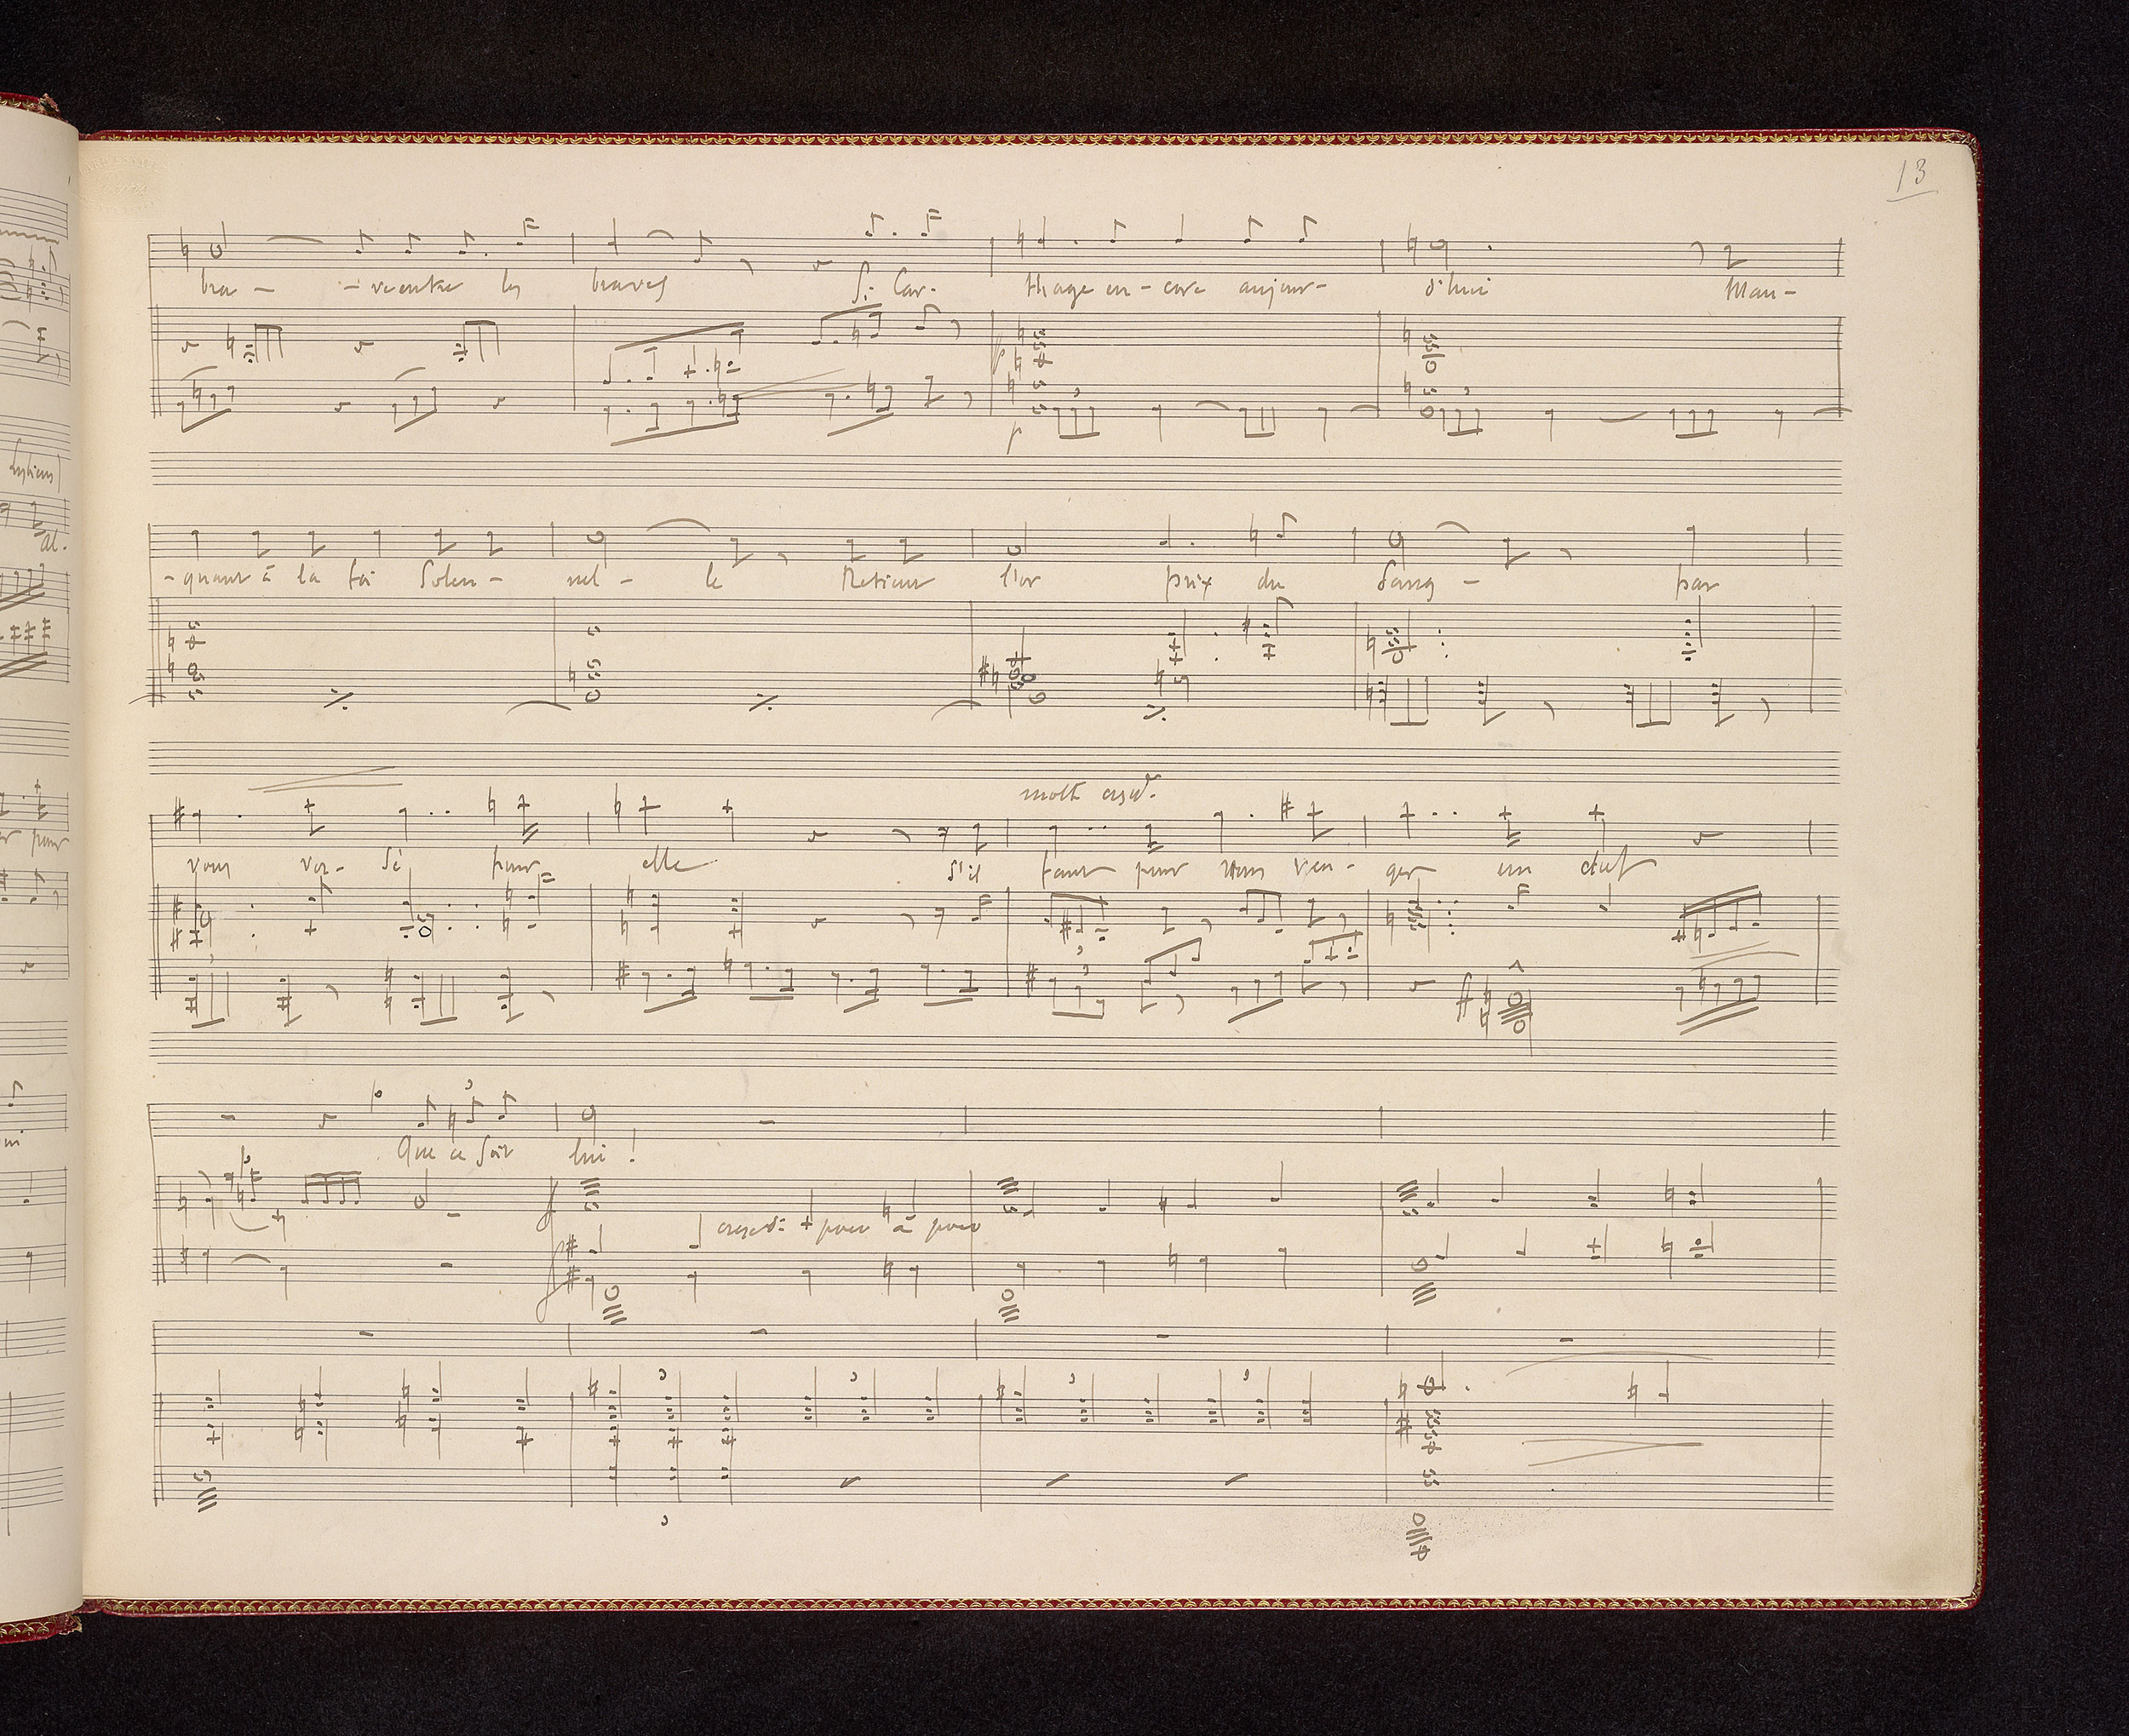 13
bra - - ve entre les braves Si Car- thage en - core aujour- d'hui Man -
p
- quant à la foi Solen - nel - le Retient l'or prix du Sang - par
molto cresc.
vous ver - sé pour elle S'il faut pour nous ven - ger un chef
p
Que ce soit lui !
cresc. poco à poco